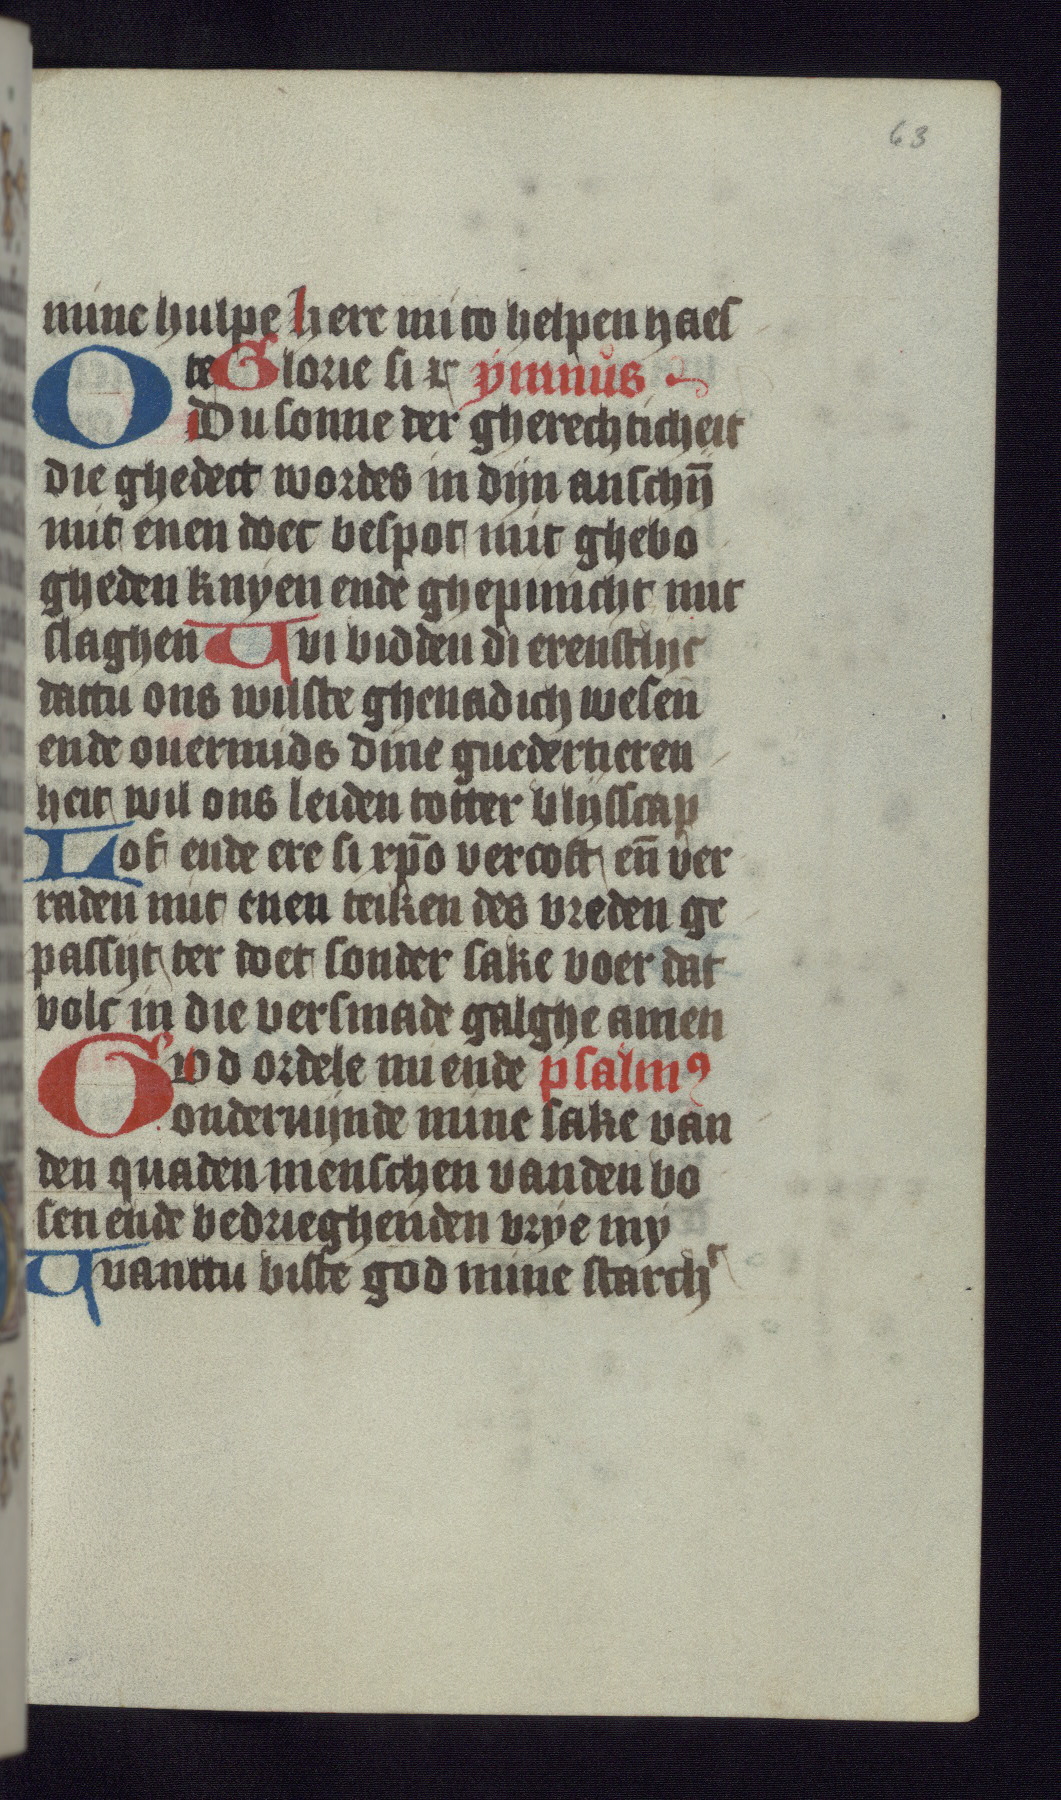 63
mine hulpe here mi to helpen haes
te Glorie si ꝛc ymnus
O Du sonne der gherechticheit
die ghedect wordes in dijn anschijn̄
mit enen doec bespot mit ghebo
gheden knyen ende ghepinicht mit
slaghen Wi bidden di erenstlijc
dattu ons wilste ghenadich wesen
ende ouermids dine guedertieren
heit wil ons leiden totter blijsscap
Lof ende ere si xp̄o vercoft en̄ ver
raden mit enen teiken des vreden ge
passijt ter doet sonder sake voer dat
volc in die versmade galghe amen
God ordele mi ende psalmꝰ
onderwijnde mine sake van
den quaden menschen vanden bo
sen ende bedrieghenden vrye my
Wanttu biste god mine starchꝰ